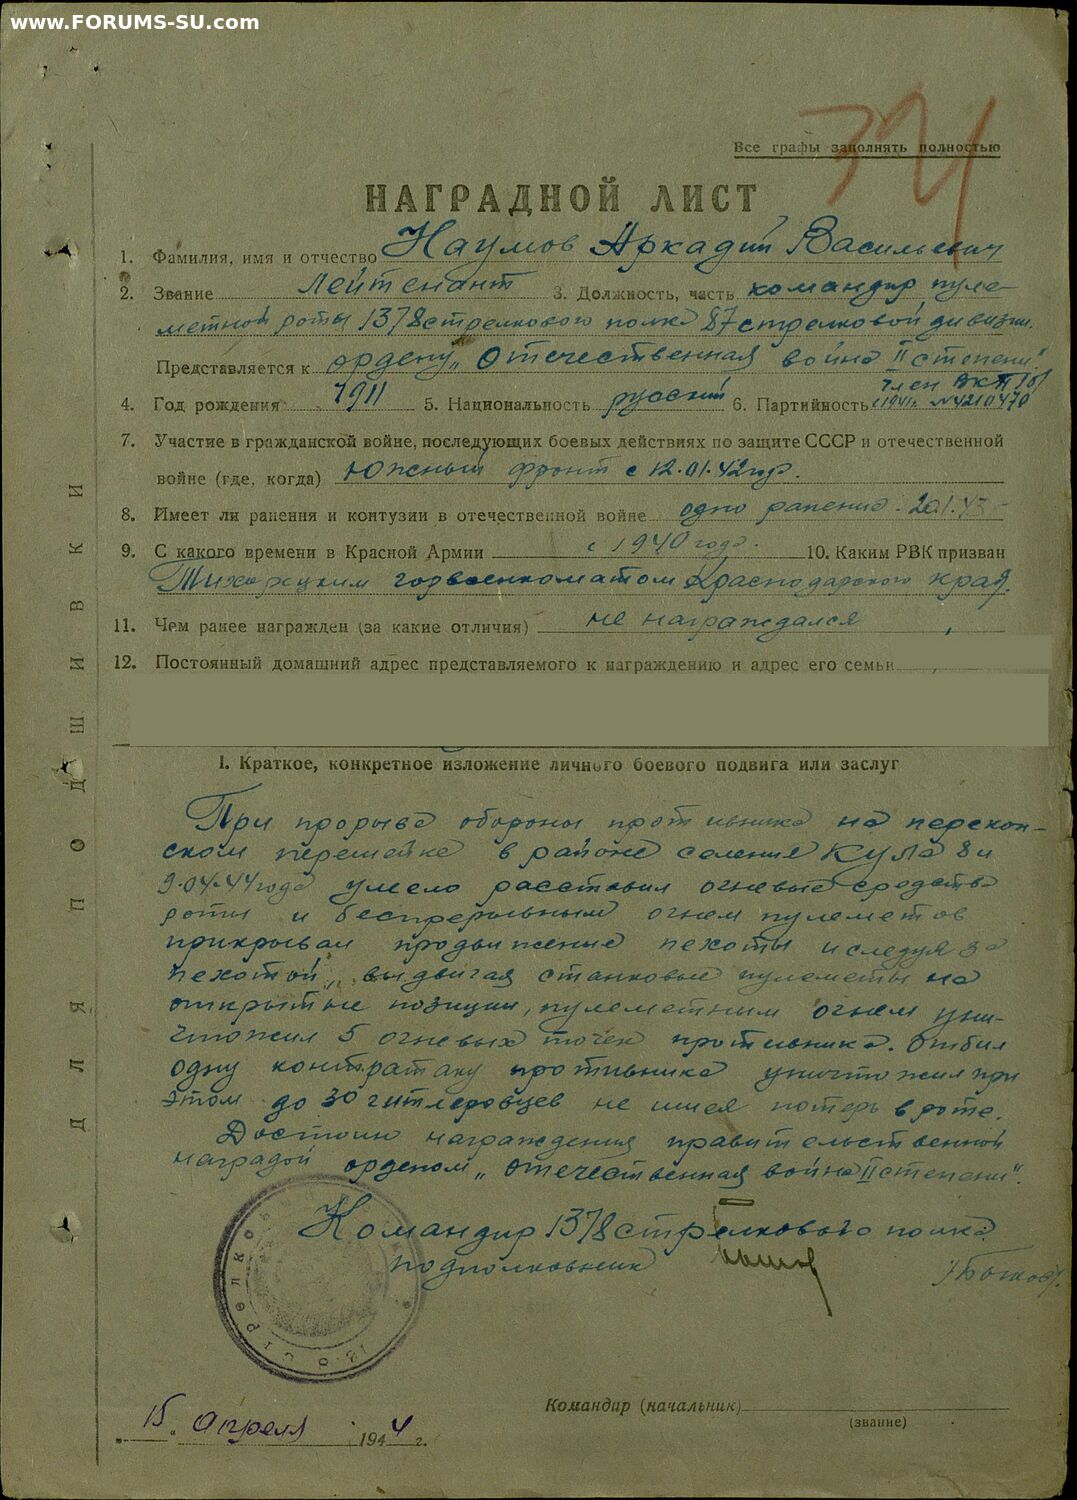 www.FORUMS-SU.com
Все графы заполнять полностью
НАГРАДНОЙ ЛИСТ
1. Фамилия, имя и отчество Наумов Аркадий Васильевич
2. Звание Лейтенант 3. Должность, часть командир пуле-
метной роты 1378 стрелкового полка 87 стрелковой дивизии.
Представляется к ордену „Отечественная война II степени".
член ВКП(б)
4. Год рождения 1911 5. Национальность русский 6. Партийность с 1941г. №4210470
7. Участие в гражданской войне, последующих боевых действиях по защите СССР и отечественной
войне (где, когда) Южный фронт с 12.01.42 года.
8. Имеет ли ранения и контузии в отечественной войне одно ранение
9. С какого времени в Красной Армии с 1940 года. 10. Каким РВК призван
Тихорецким горвоенкоматом Краснодарского края.
11. Чем ранее награжден (за какие отличия) не награждался
12. Постоянный домашний адрес представляемого к награждению и адрес его семьи
I. Краткое, конкретное изложение личного боевого подвига или заслуг
При прорыве обороны противника на перекоп-
ском перешейке в районе селения Кула 8 и
9.04.44 года умело расставил огневые средства
роты и беспрерывным огнем пулеметов
прикрывал продвижение пехоты и следуя за
пехотой, выдвигая станковые пулеметы на
открытые позиции, пулеметным огнем уни-
чтожил 5 огневых точек противника. Отбил
одну контратаку противника уничтожил при
этом до 30 гитлеровцев не имея потерь в роте.
Достоин награждения правительственной
наградой орденом „Отечественная война II степени".
Командир 1378 стрелкового полка
подполковник /Быков/.
15 Апреля 1944 г.
Командир (начальник)
(звание)
ДЛЯ ПОДШИВКИ